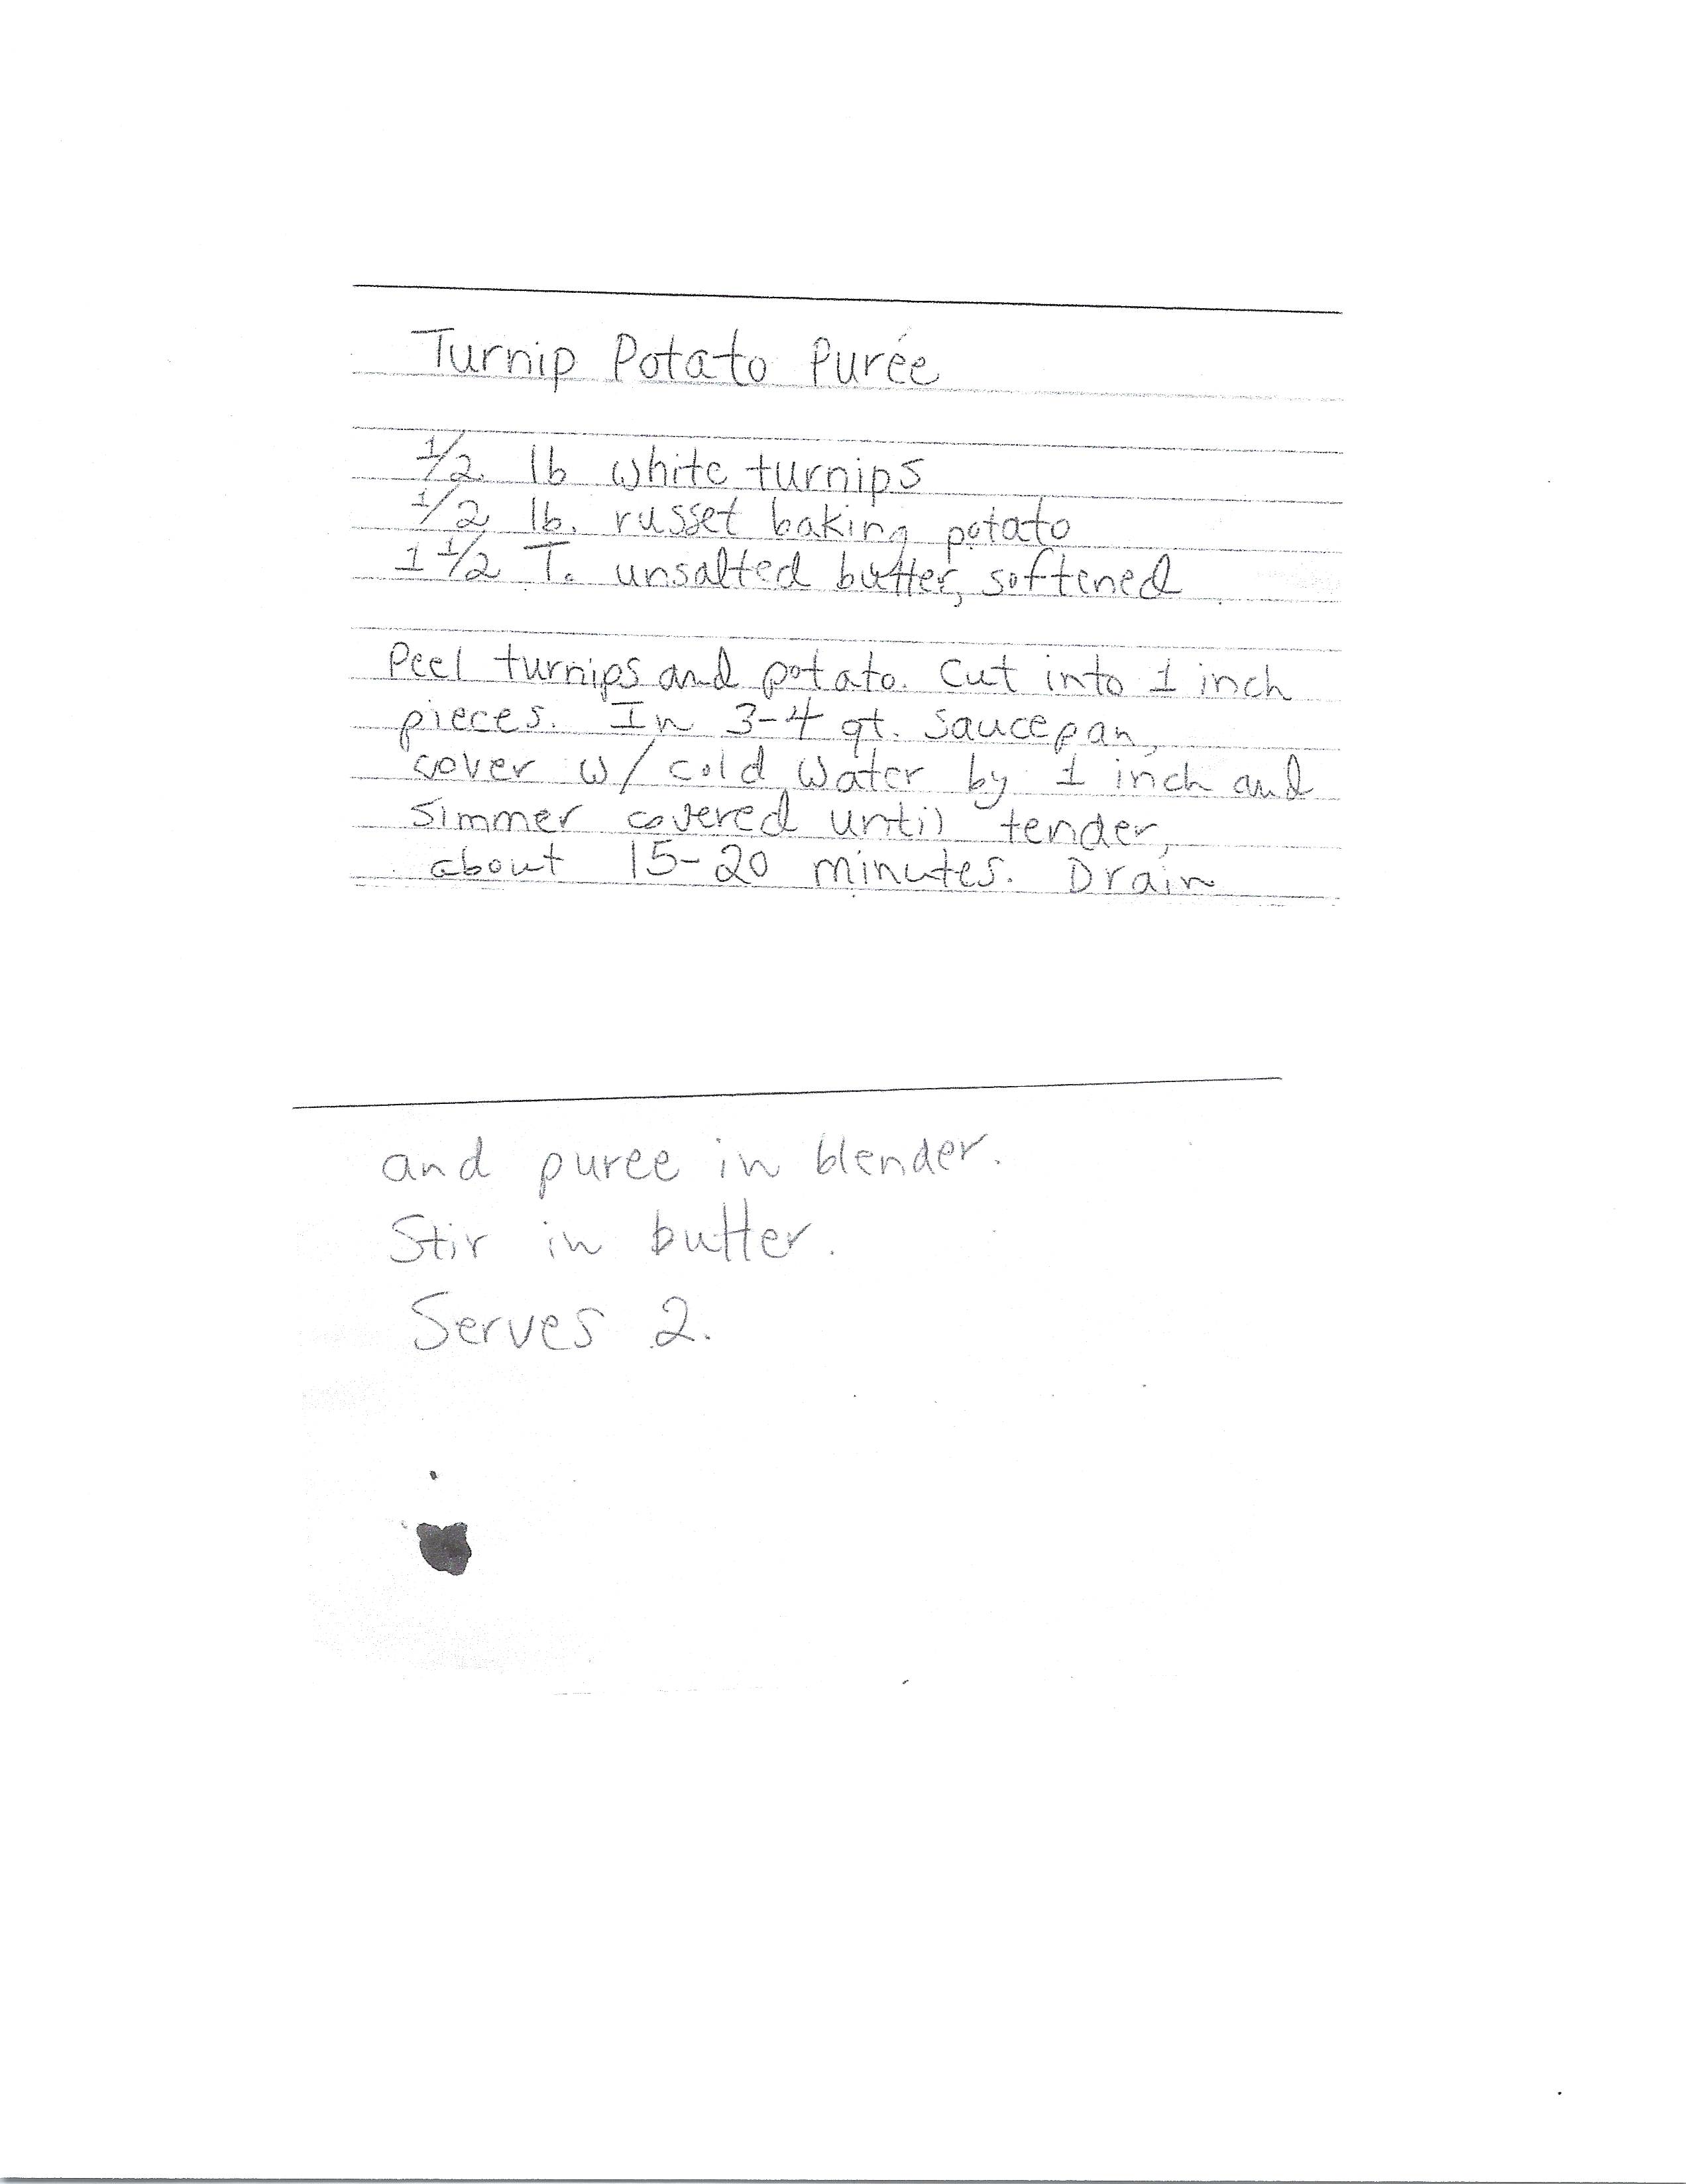 Turnip Potato Purée
1/2 lb white turnips
1/2 lb. russet baking potato
1 1/2 T. unsalted butter, softened
Peel turnips and potato. Cut into 1 inch
pieces. In 3-4 qt. saucepan,
cover w/ cold water by 1 inch and
simmer covered until tender,
about 15-20 minutes. Drain
and puree in blender.
Stir in butter.
Serves 2.